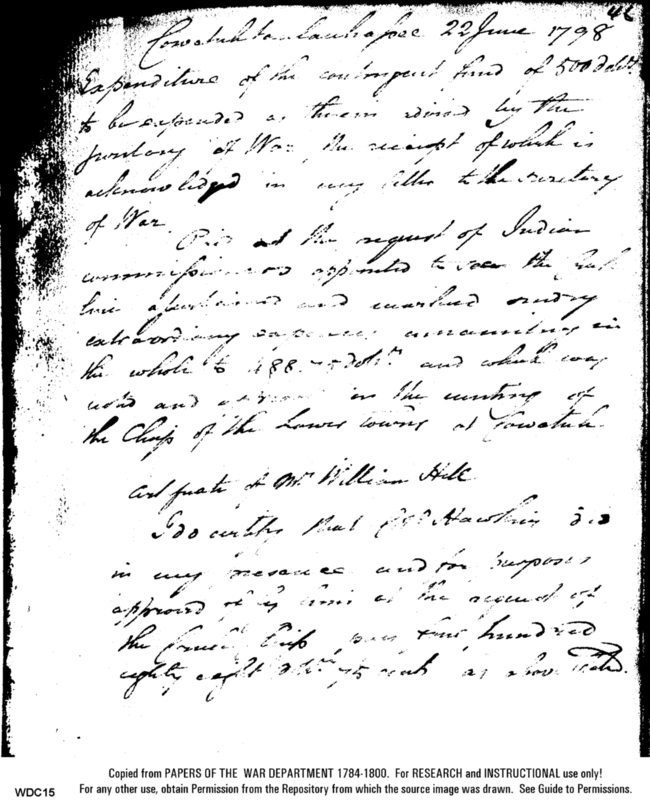 46
22 June 1798
Expenditure of the contingent fund of 500 dolrs.
to be expended as therein advised by the
of War, the receipt of which is
acknowledged in my letter to the secretary
of War.
Paid at the request of Indian
commissioners appointed to see the
line ascertained and marked sundry
extraordinary expences amounting in
the whole to 488.75 dolrs. and which was
and in the meeting of
the Chiefs of the Lower towns at Cowetuh.
Certificate of Mr. William Hill
I do certify that Colo. Hawkins did
in my presence and for purposes
approved of by him at the request of
the Creek Chiefs, pay four hundred
eighty eight dolrs. 75 cents as above stated.
Copied from PAPERS OF THE WAR DEPARTMENT 1784-1800. For RESEARCH and INSTRUCTIONAL use only!
WDC15 For any other use, obtain Permission from the Repository from which the source image was drawn. See Guide to Permissions.